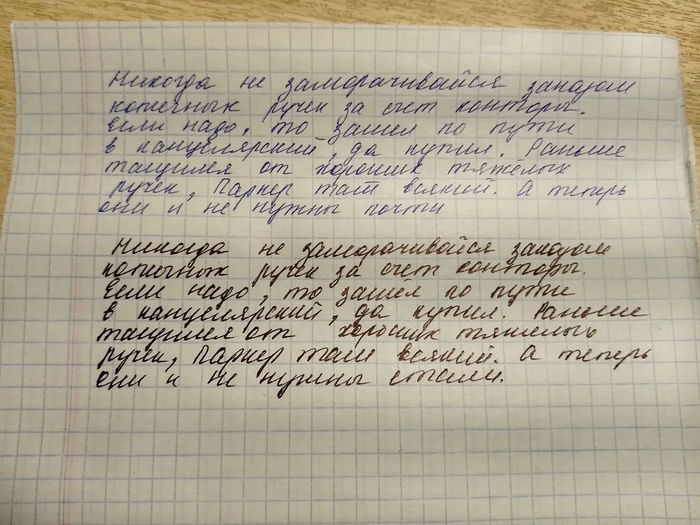 Никогда не заморачивайся заказом
копеечных ручек за счет конторы.
Если надо, то зашел по пути
в канцелярский, да купил. Раньше
тащился от хороших тяжёлых
ручек, Паркер там всякий. А теперь
они и не нужны почти
Никогда не заморачивайся заказом
копеечных ручек за счет конторы.
Если надо, то зашёл по пути
в канцелярский, да купил. Раньше
тащился от хороших тяжелых
ручек, Паркер там всякий. А теперь
они и не нужны стали.